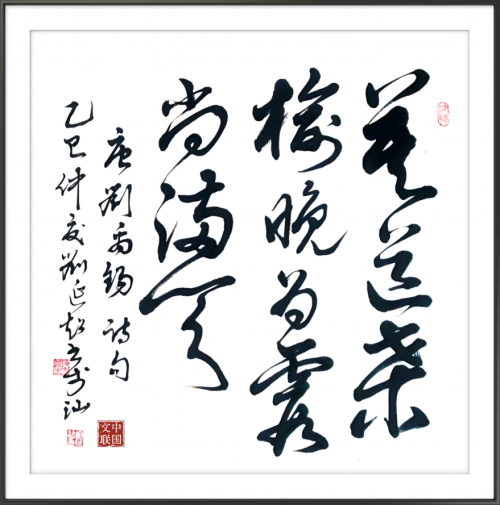 莫道桑
榆晚为霞
尚满天
唐劉禹锡诗句
乙巳仲夏劉延超书於汕
中国
文联